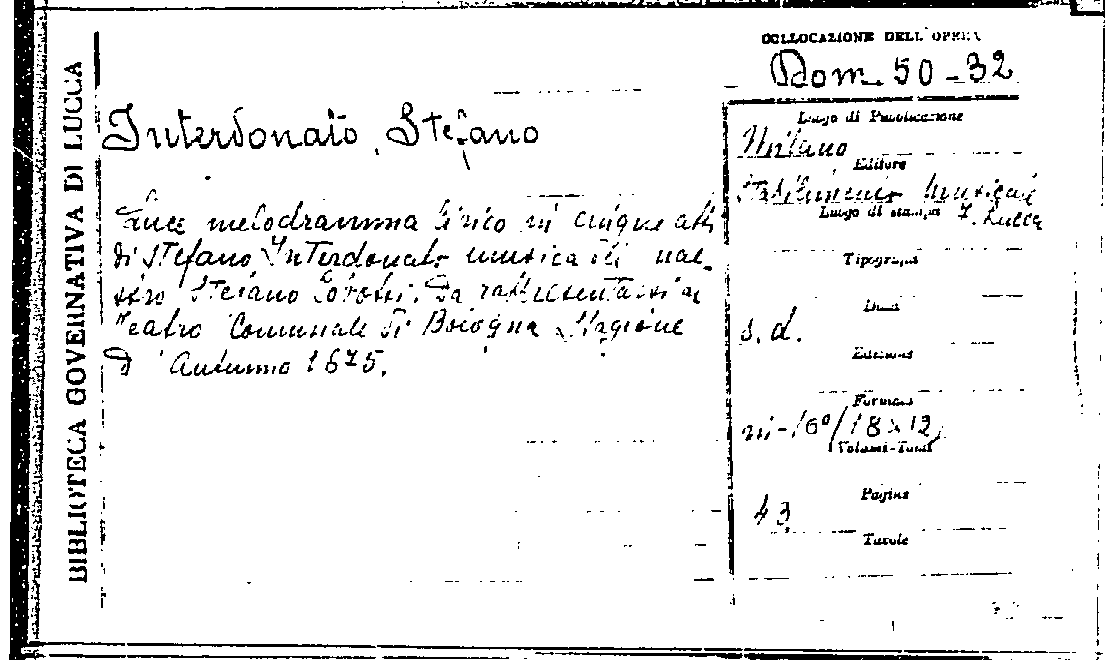 BIBLIOTECA GOVERNATIVA DI LUCCA
COLLOCAZIONE DELL'OPERA
Dom. 50-32
Interdonato, Stefano
Luce melodramma lirico in cinque atti
di Stefano Interdonato musica del mae-
stro Stefano Gobatti. Da rappresentarsi al
Teatro Comunale di Bologna Stagione
d'Autunno 1875.
Luogo di Pubblicazione
Milano
Editore
Stabilimento Musicale
F. Lucca
Luogo di stampa
Tipografia
Data
s.d.
Edizione
Formato
in-16°/18x12
Volumi-Tomi
Pagine
43
Tavole